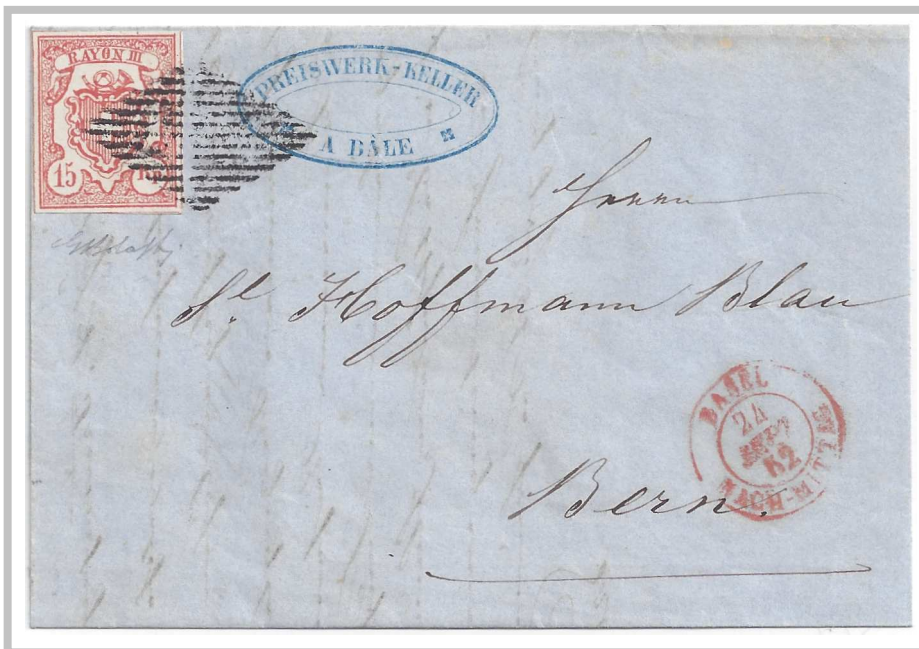 RAYON III
15
PREISWERK-KELLER
A BÂLE
Herrn
Hoffmann Blau
BASEL
24
SEPT
52
NACH-MITTAG
Bern.